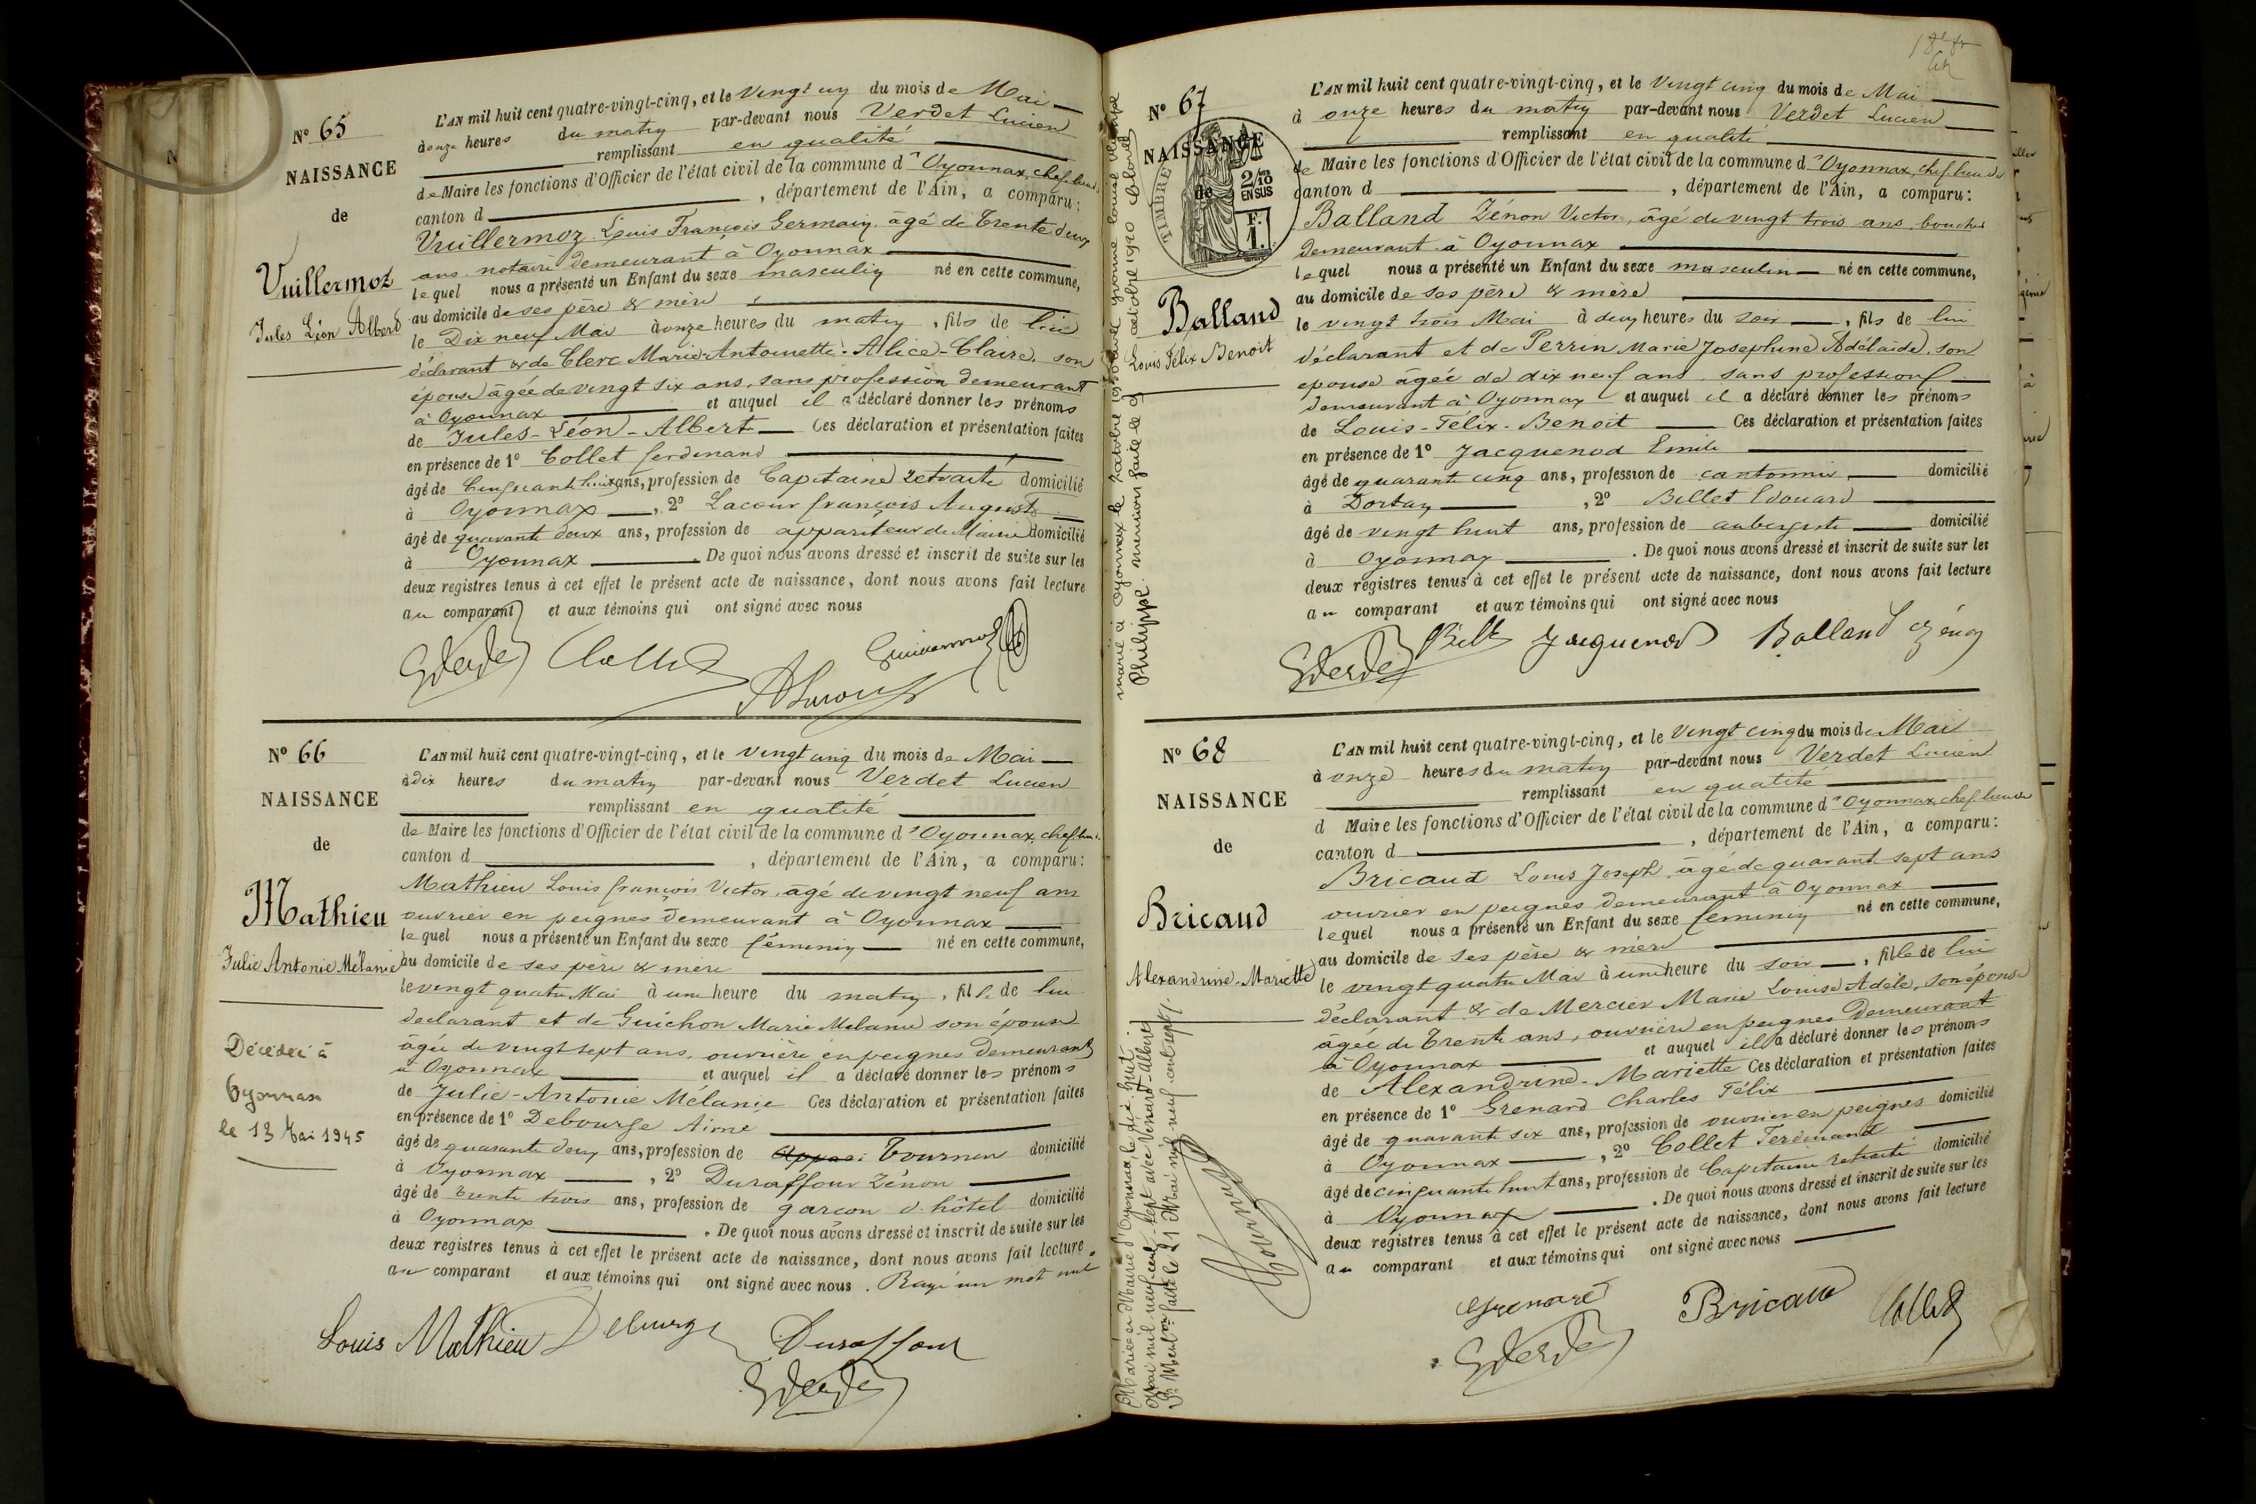 N° 65
NAISSANCE
de
Vuillermoz
Jules Léon Albert
L'AN mil huit cent quatre-vingt-cinq, et le vingt un du mois de Mai
à onze heures du matin par-devant nous Verdet Lucien
remplissant en qualité
de Maire les fonctions d'Officier de l'état civil de la commune d'Oyonnax, chef lieu de
canton d , département de l'Ain, a comparu :
Vuillermoz Louis François Germain âgé de Trente deux
ans notaire demeurant à Oyonnax
lequel nous a présenté un Enfant du sexe masculin né en cette commune,
au domicile de ses père & mère
le Dix neuf Mai à onze heures du matin, fils de lui
déclarant & de Clerc Marie-Antoinette-Alice-Claire, son
épouse âgée de vingt six ans, sans profession demeurant
à Oyonnax et auquel il a déclaré donner les prénoms
de Jules-Léon-Albert Ces déclaration et présentation faites
en présence de 1° Collet ferdinand
âgé de Cinquante huit ans, profession de Capitaine retraité domicilié
à Oyonnax, 2° Lacour françois Auguste
âgé de quarante deux ans, profession de appariteur de Mairie domicilié
à Oyonnax. De quoi nous avons dressé et inscrit de suite sur les
deux registres tenus à cet effet le présent acte de naissance, dont nous avons fait lecture
au comparant et aux témoins qui ont signé avec nous
N° 66
NAISSANCE
de
Mathieu
Julie Antonie Mélanie
Décédée à
Oyonnax
le 13 Mai 1945
L'AN mil huit cent quatre-vingt-cinq, et le vingt cinq du mois de Mai
à dix heures du matin par-devant nous Verdet Lucien
remplissant en qualité
de Maire les fonctions d'Officier de l'état civil de la commune d'Oyonnax, chef lieu de
canton d , département de l'Ain, a comparu :
Mathieu Louis françois Victor, âgé de vingt neuf ans
ouvrier en peignes demeurant à Oyonnax
lequel nous a présenté un Enfant du sexe féminin né en cette commune,
au domicile de ses père & mère
le vingt quatre Mai à une heure du matin, fille de lui
déclarant et de Guichon Marie Mélanie son épouse
âgée de vingt sept ans, ouvrière en peignes demeurant
à Oyonnax et auquel il a déclaré donner les prénoms
de Julie-Antonie Mélanie Ces déclaration et présentation faites
en présence de 1° Debourge Aimé
âgé de quarante deux ans, profession de Tourneur domicilié
à Oyonnax, 2° Duraffour Zénon
âgé de trente trois ans, profession de garçon d'hôtel domicilié
à Oyonnax. De quoi nous avons dressé et inscrit de suite sur les
deux registres tenus à cet effet le présent acte de naissance, dont nous avons fait lecture
au comparant et aux témoins qui ont signé avec nous. Rayé un mot nul.
Louis Mathieu Debourge Duraffour
N° 67
NAISSANCE
de
TIMBRE
2/10
EN SUS
F.
1.
Balland
Louis Félix Benoit
marié à Oyonnax le
Philippe. mention faite le 9 octobre 1910
L'AN mil huit cent quatre-vingt-cinq, et le vingt cinq du mois de Mai
à onze heures du matin par-devant nous Verdet Lucien
remplissant en qualité
de Maire les fonctions d'Officier de l'état civil de la commune d'Oyonnax, chef lieu de
canton d , département de l'Ain, a comparu :
Balland Zénon Victor, âgé de vingt trois ans, boucher
demeurant à Oyonnax
lequel nous a présenté un Enfant du sexe masculin né en cette commune,
au domicile de ses père & mère
le vingt trois Mai à deux heures du soir, fils de lui
déclarant et de Perrin Marie Josephine Adélaïde, son
épouse âgée de dix neuf ans, sans profession
demeurant à Oyonnax et auquel il a déclaré donner les prénoms
de Louis-Félix-Benoit Ces déclaration et présentation faites
en présence de 1° Jacquenod Emile
âgé de quarante cinq ans, profession de cantonnier domicilié
à Dortan, 2° Billet Edouard
âgé de vingt huit ans, profession de aubergiste domicilié
à Oyonnax. De quoi nous avons dressé et inscrit de suite sur les
deux registres tenus à cet effet le présent acte de naissance, dont nous avons fait lecture
au comparant et aux témoins qui ont signé avec nous
Jacquenod Balland Zénon
N° 68
NAISSANCE
de
Bricaud
Alexandrine-Mariette
Mariée en Mairie d'Oyonnax le dix huit
Mai mil neuf cent sept avec Venard Albert
L'AN mil huit cent quatre-vingt-cinq, et le vingt cinq du mois de Mai
à onze heures du matin par-devant nous Verdet Lucien
remplissant en qualité
d Maire les fonctions d'Officier de l'état civil de la commune d'Oyonnax, chef lieu de
canton d , département de l'Ain, a comparu :
Bricaud Louis Joseph, âgé de quarante sept ans
ouvrier en peignes demeurant à Oyonnax
lequel nous a présenté un Enfant du sexe féminin né en cette commune,
au domicile de ses père & mère
le vingt quatre Mai à une heure du soir, fille de lui
déclarant & de Mercier Marie Louise Adèle, son épouse
âgée de Trente ans, ouvrière en peignes demeurant
à Oyonnax et auquel il a déclaré donner les prénoms
de Alexandrine-Mariette Ces déclaration et présentation faites
en présence de 1° Grenard Charles Félix
âgé de quarante six ans, profession de ouvrier en peignes domicilié
à Oyonnax, 2° Collet Ferdinand
âgé de cinquante huit ans, profession de Capitaine retraité domicilié
à Oyonnax. De quoi nous avons dressé et inscrit de suite sur les
deux registres tenus à cet effet le présent acte de naissance, dont nous avons fait lecture
au comparant et aux témoins qui ont signé avec nous
Grenard Bricaud Collet